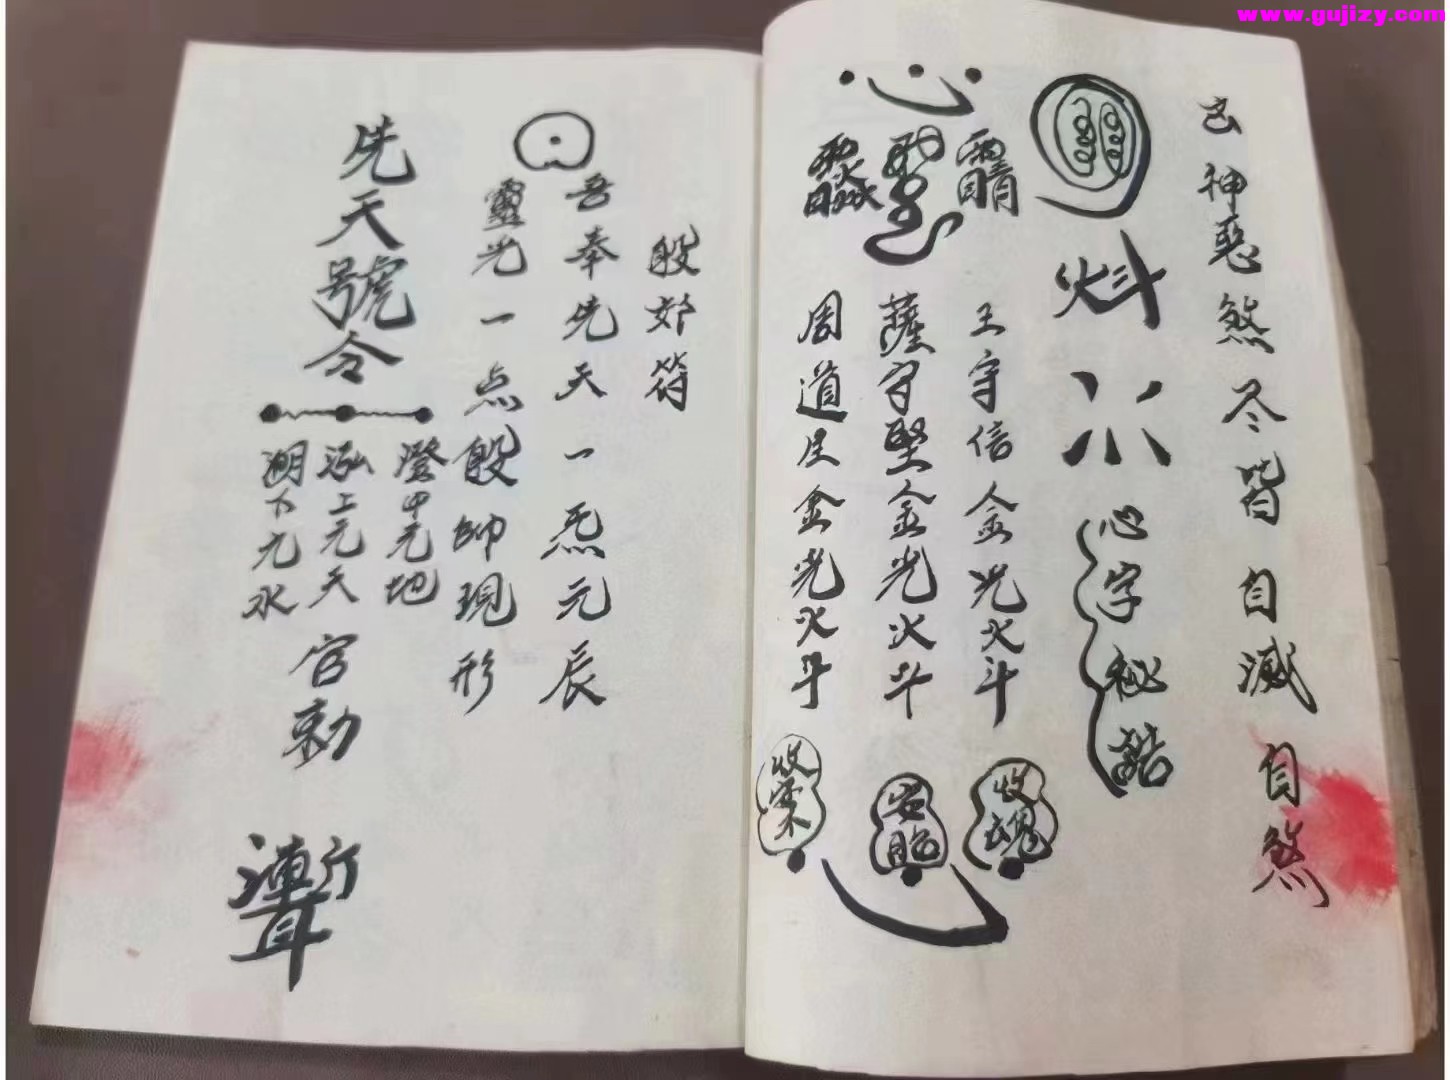 www.gujizy.com
神惡煞尽皆自滅自煞
心字秘諾
王守信金光火斗
薩守堅金光火斗
周道金光火斗
收魂
安胎
收
殷郊符
吾奉先天一炁元辰
靈光一点殷帥現形
先天號令
澄中元地
泓上元天
下元水
官勅